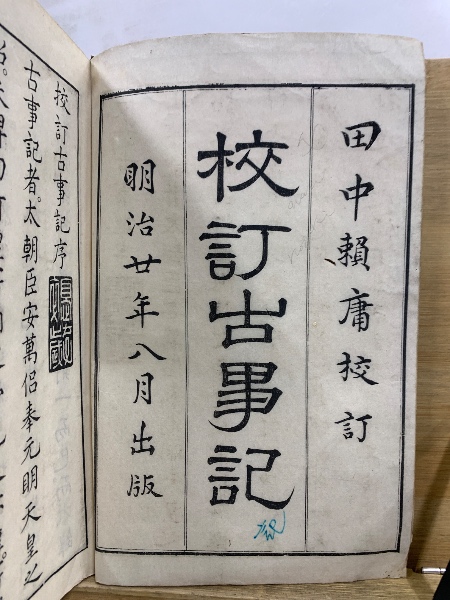 田中賴庸校訂
校訂古事記
明治廿年八月出版
校訂古事記序
古事記者。太朝臣安萬侶奉元明天皇之